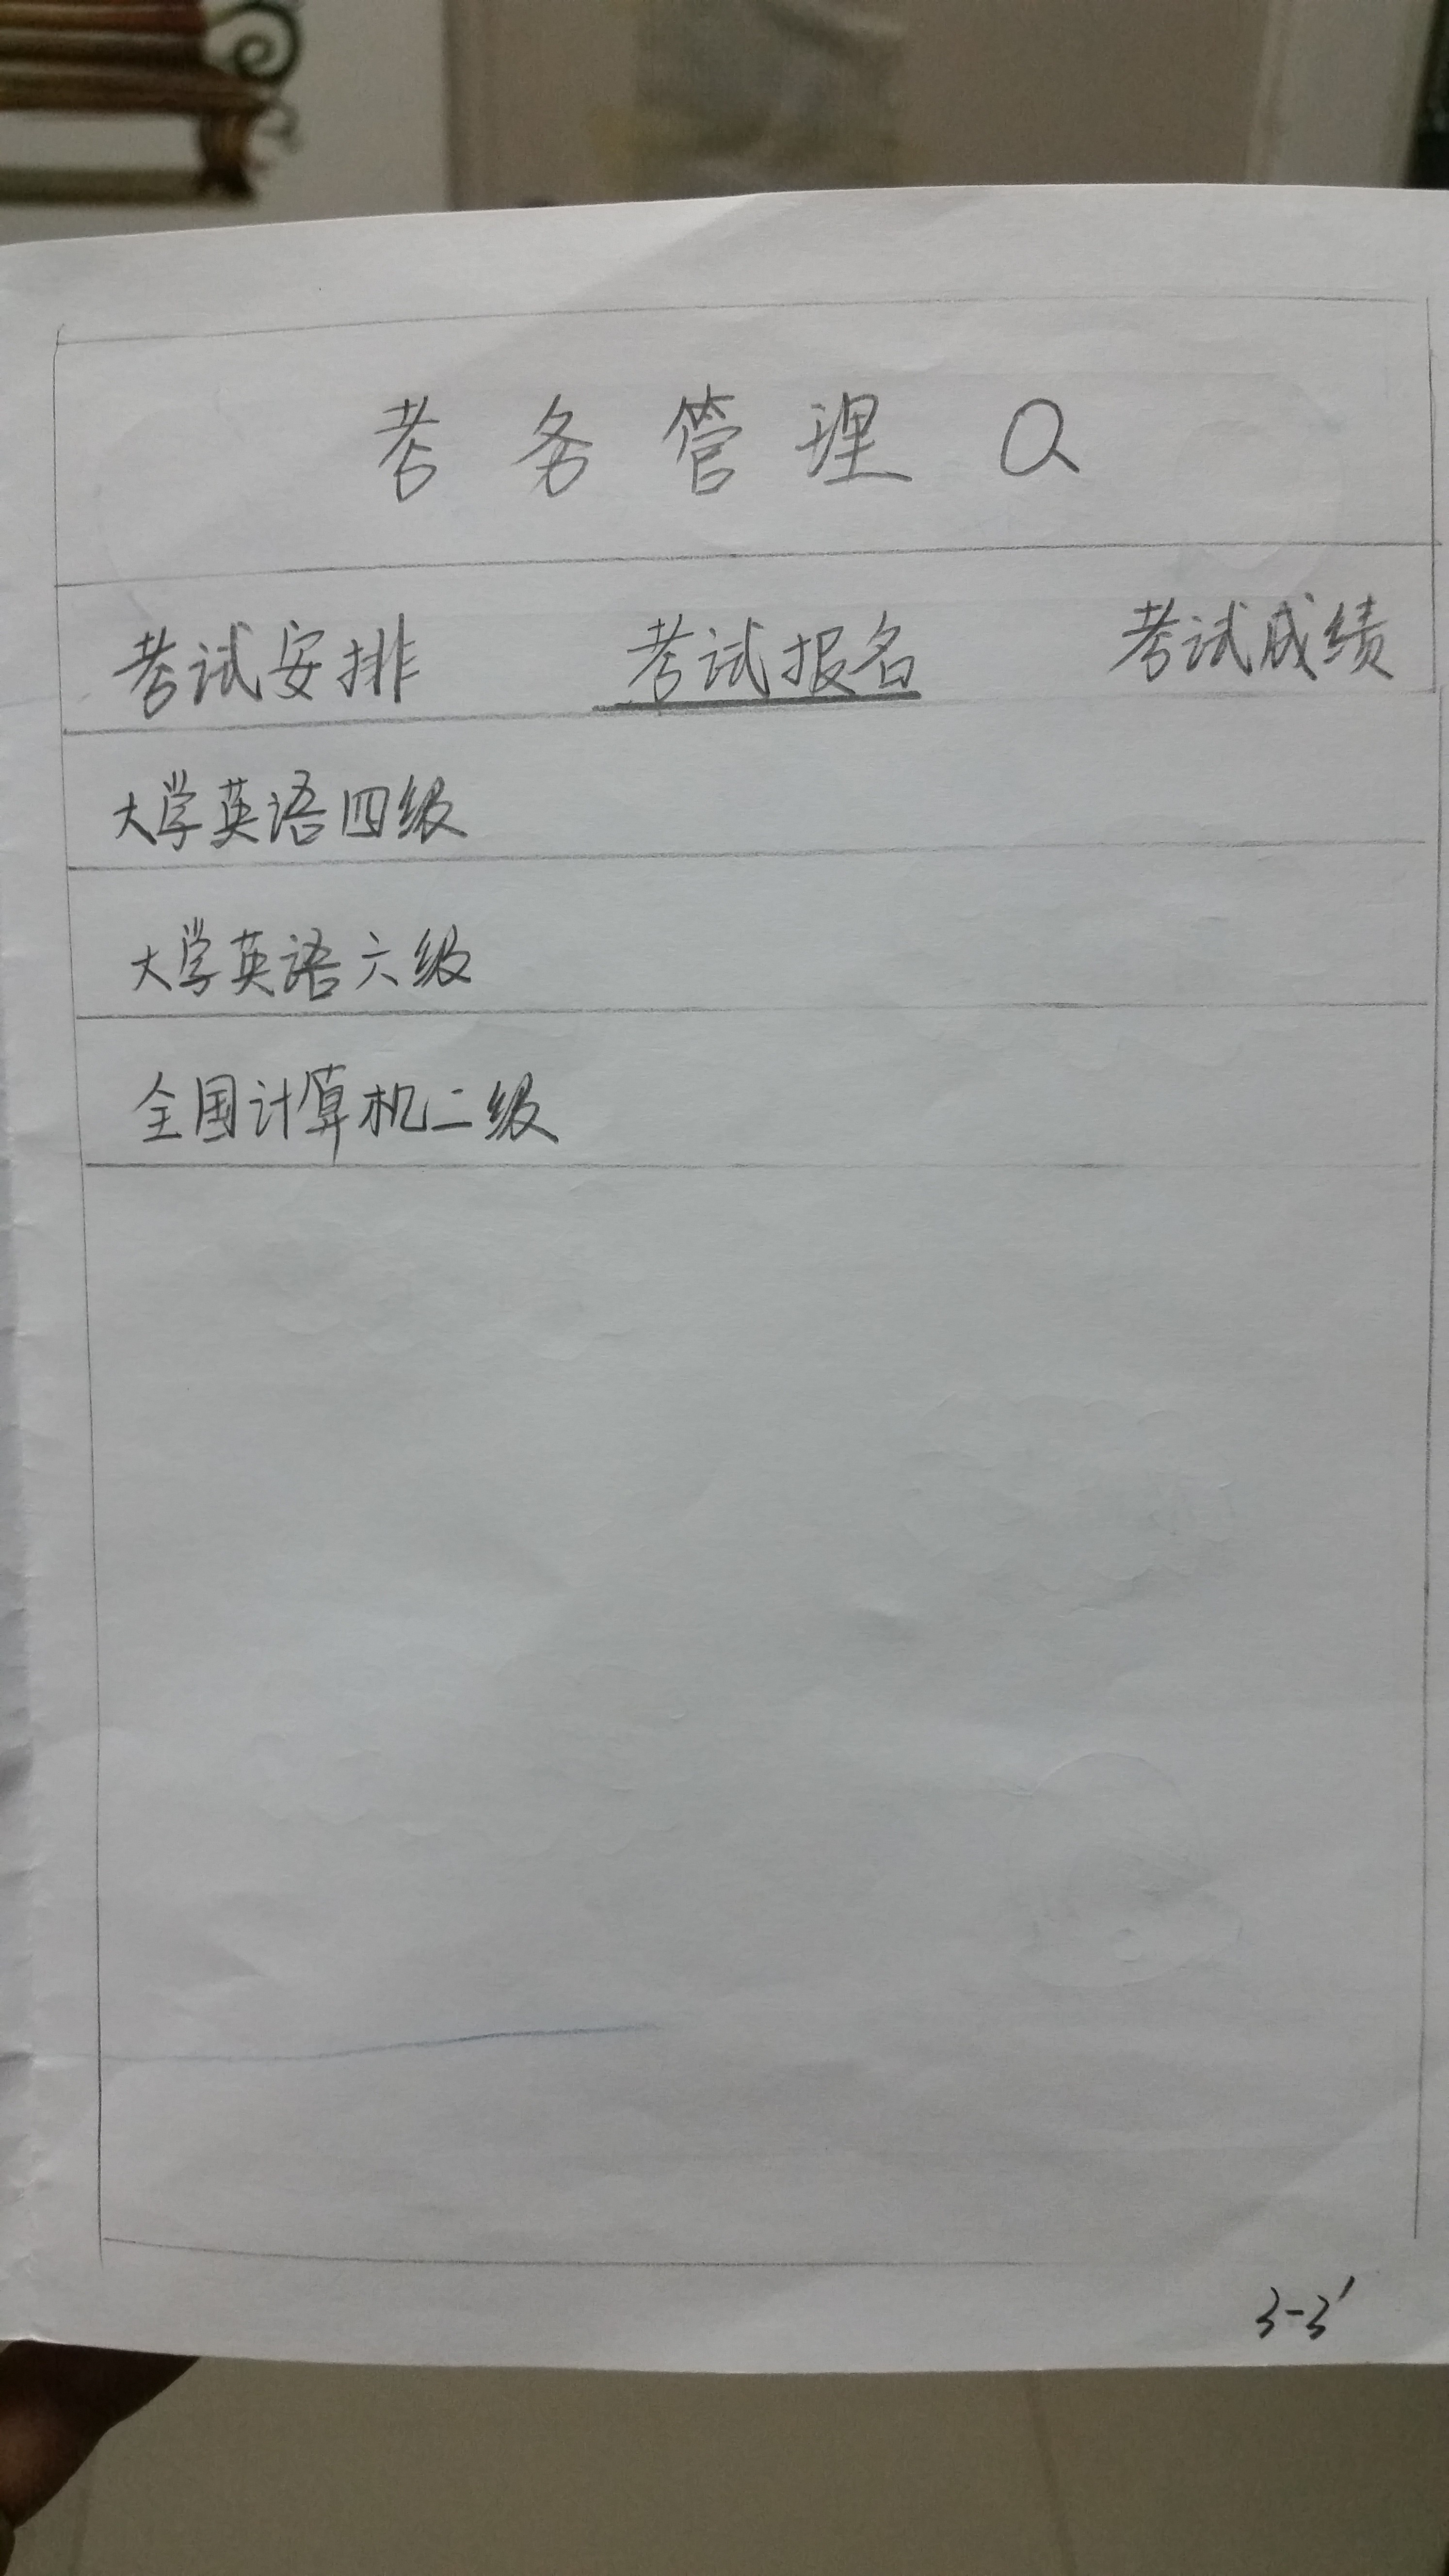 考务管理 Q
考试安排 考试报名 考试成绩
大学英语四级
大学英语六级
全国计算机二级
3-3'